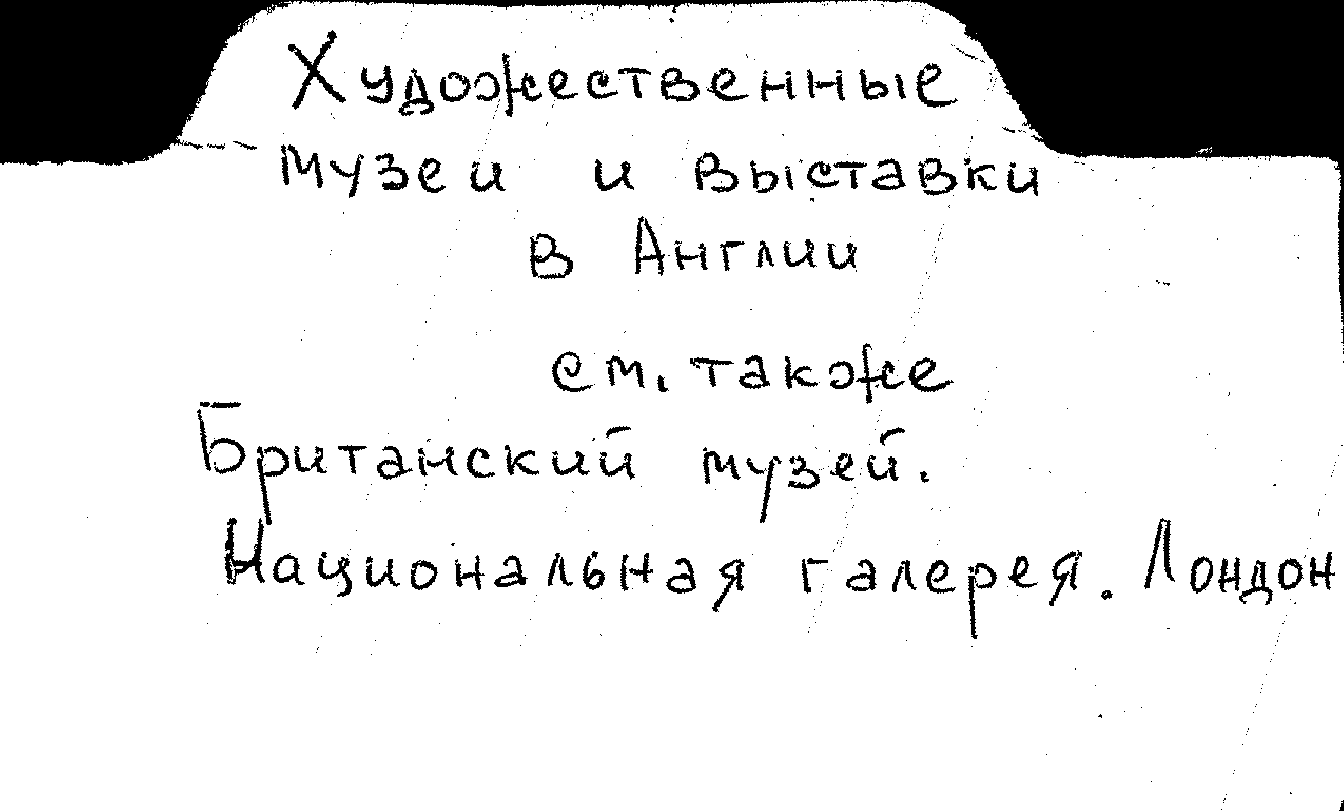 Художественные
музеи и выставки
в Англии
см. также
Британский музей.
Национальная галерея. Лондон